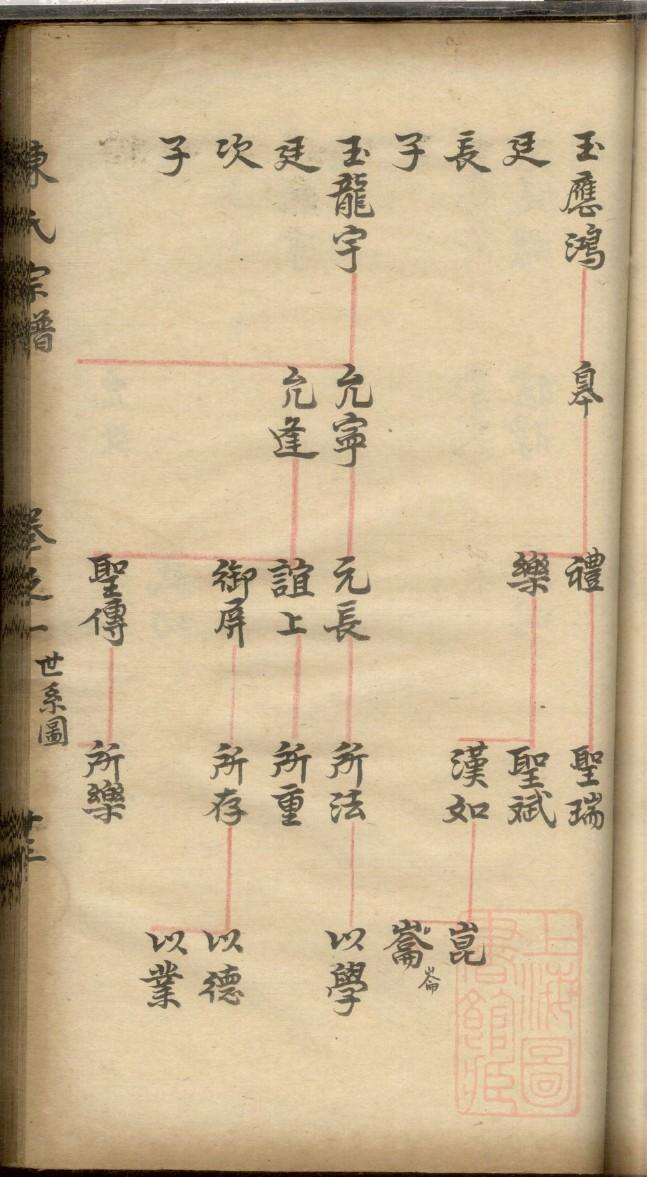 玉應鴻
廷
長
子
玉龍宇
廷
次
子
皋
允寧
允逢
禮
樂
元長
誼上
御屏
聖傳
聖瑞
聖斌
漢如
所法
所重
所存
所樂
崑
崙
崙
以學
以德
以業
陳氏宗譜
卷之一
世系圖
十三
上海圖
書館藏